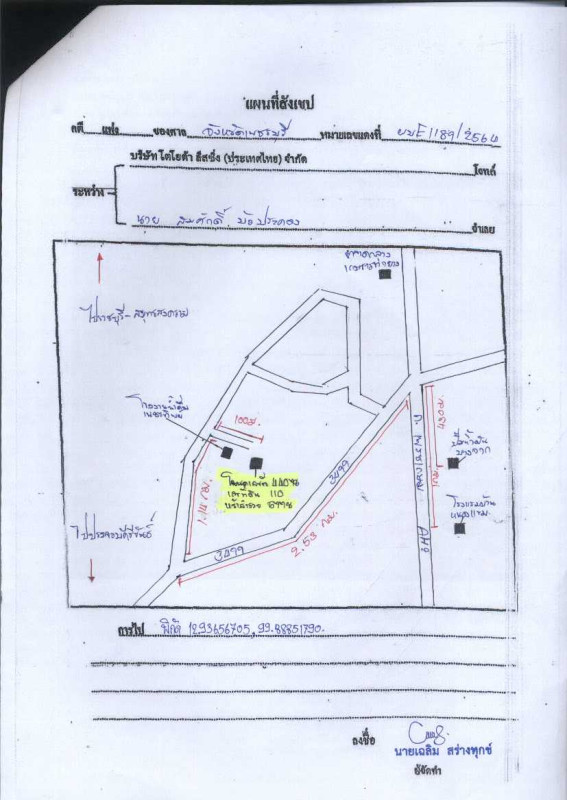 แผนที่สังเขป
คดี แห่ง ของศาล จังหวัดเพชรบุรี หมายเลขแดงที่ ผบE1189/2564
บริษัท โตโยต้า ลีสซิ่ง (ประเทศไทย) จำกัด โจทก์
ระหว่าง
นาย สมศักดิ์ จำเลย
ไปราชบุรี-สมุทรสงคราม
100ม.
โฉนดเลขที่
เลขที่ดิน 110
1.14 กม.
3499
3499
2.53 กม.
ถ. เพชรเกษม
AH2
430ม.
ปั๊มน้ำมัน
บางจาก
1กม.
โรงแรมบ้าน
ไปประจวบคีรีขันธ์
การไป พิกัด 12.93656705, 99.88851790.
ลงชื่อ
นายเฉลิม สร่างทุกข์
ผู้จัดทำ